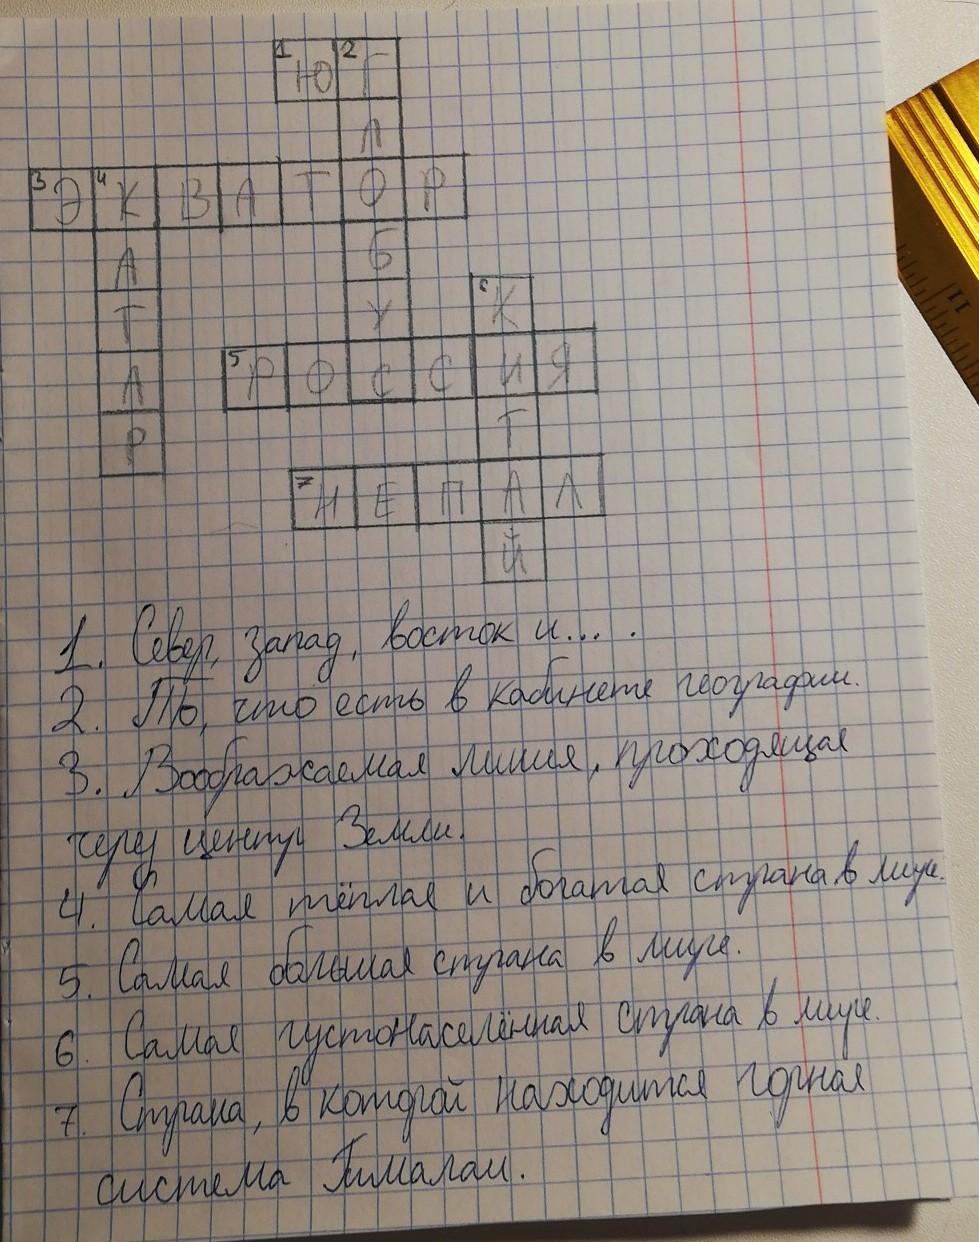 1 Ю 2 Г
Л
3 Э 4 К В А Т О Р
А Б
Т У 6 К
А 5 Р О С С И Я
Р Т
7 Н Е П А Л
Й
1. Север, запад, восток и... .
2. То, что есть в кабинете географии.
3. Воображаемая линия, проходящая
через центр Земли.
4. Самая тёплая и богатая страна в мире.
5. Самая большая страна в мире.
6. Самая густонаселённая страна в мире.
7. Страна, в которой находится горная
система Гималаи.
11